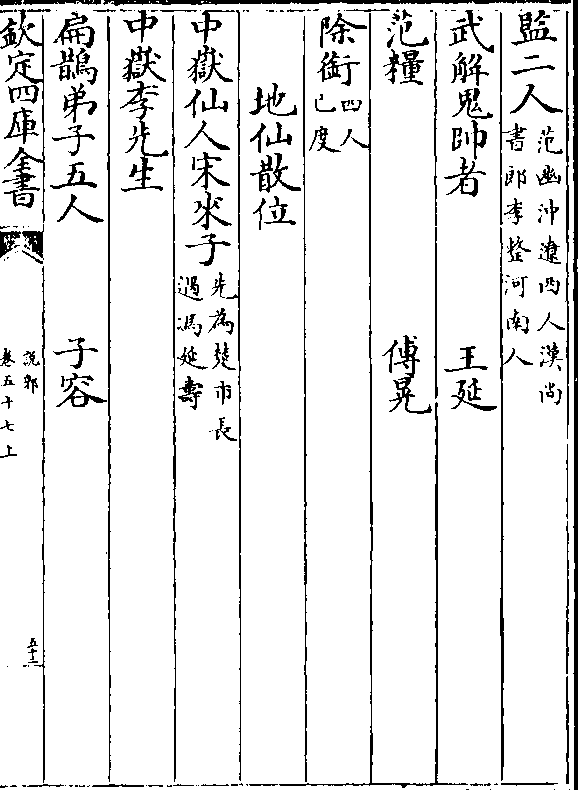 監二人范幽沖遼西人漢尚書郎李整河南人
武解鬼帥者 王延
范糧 傅晃
除衘四人已度
地仙散位
中嶽仙人宋來子先為楚市長遇馮延壽
中嶽李先生
扁鵲弟子五人 子容
欽定四庫全書 說郛 卷五十七上 五十二